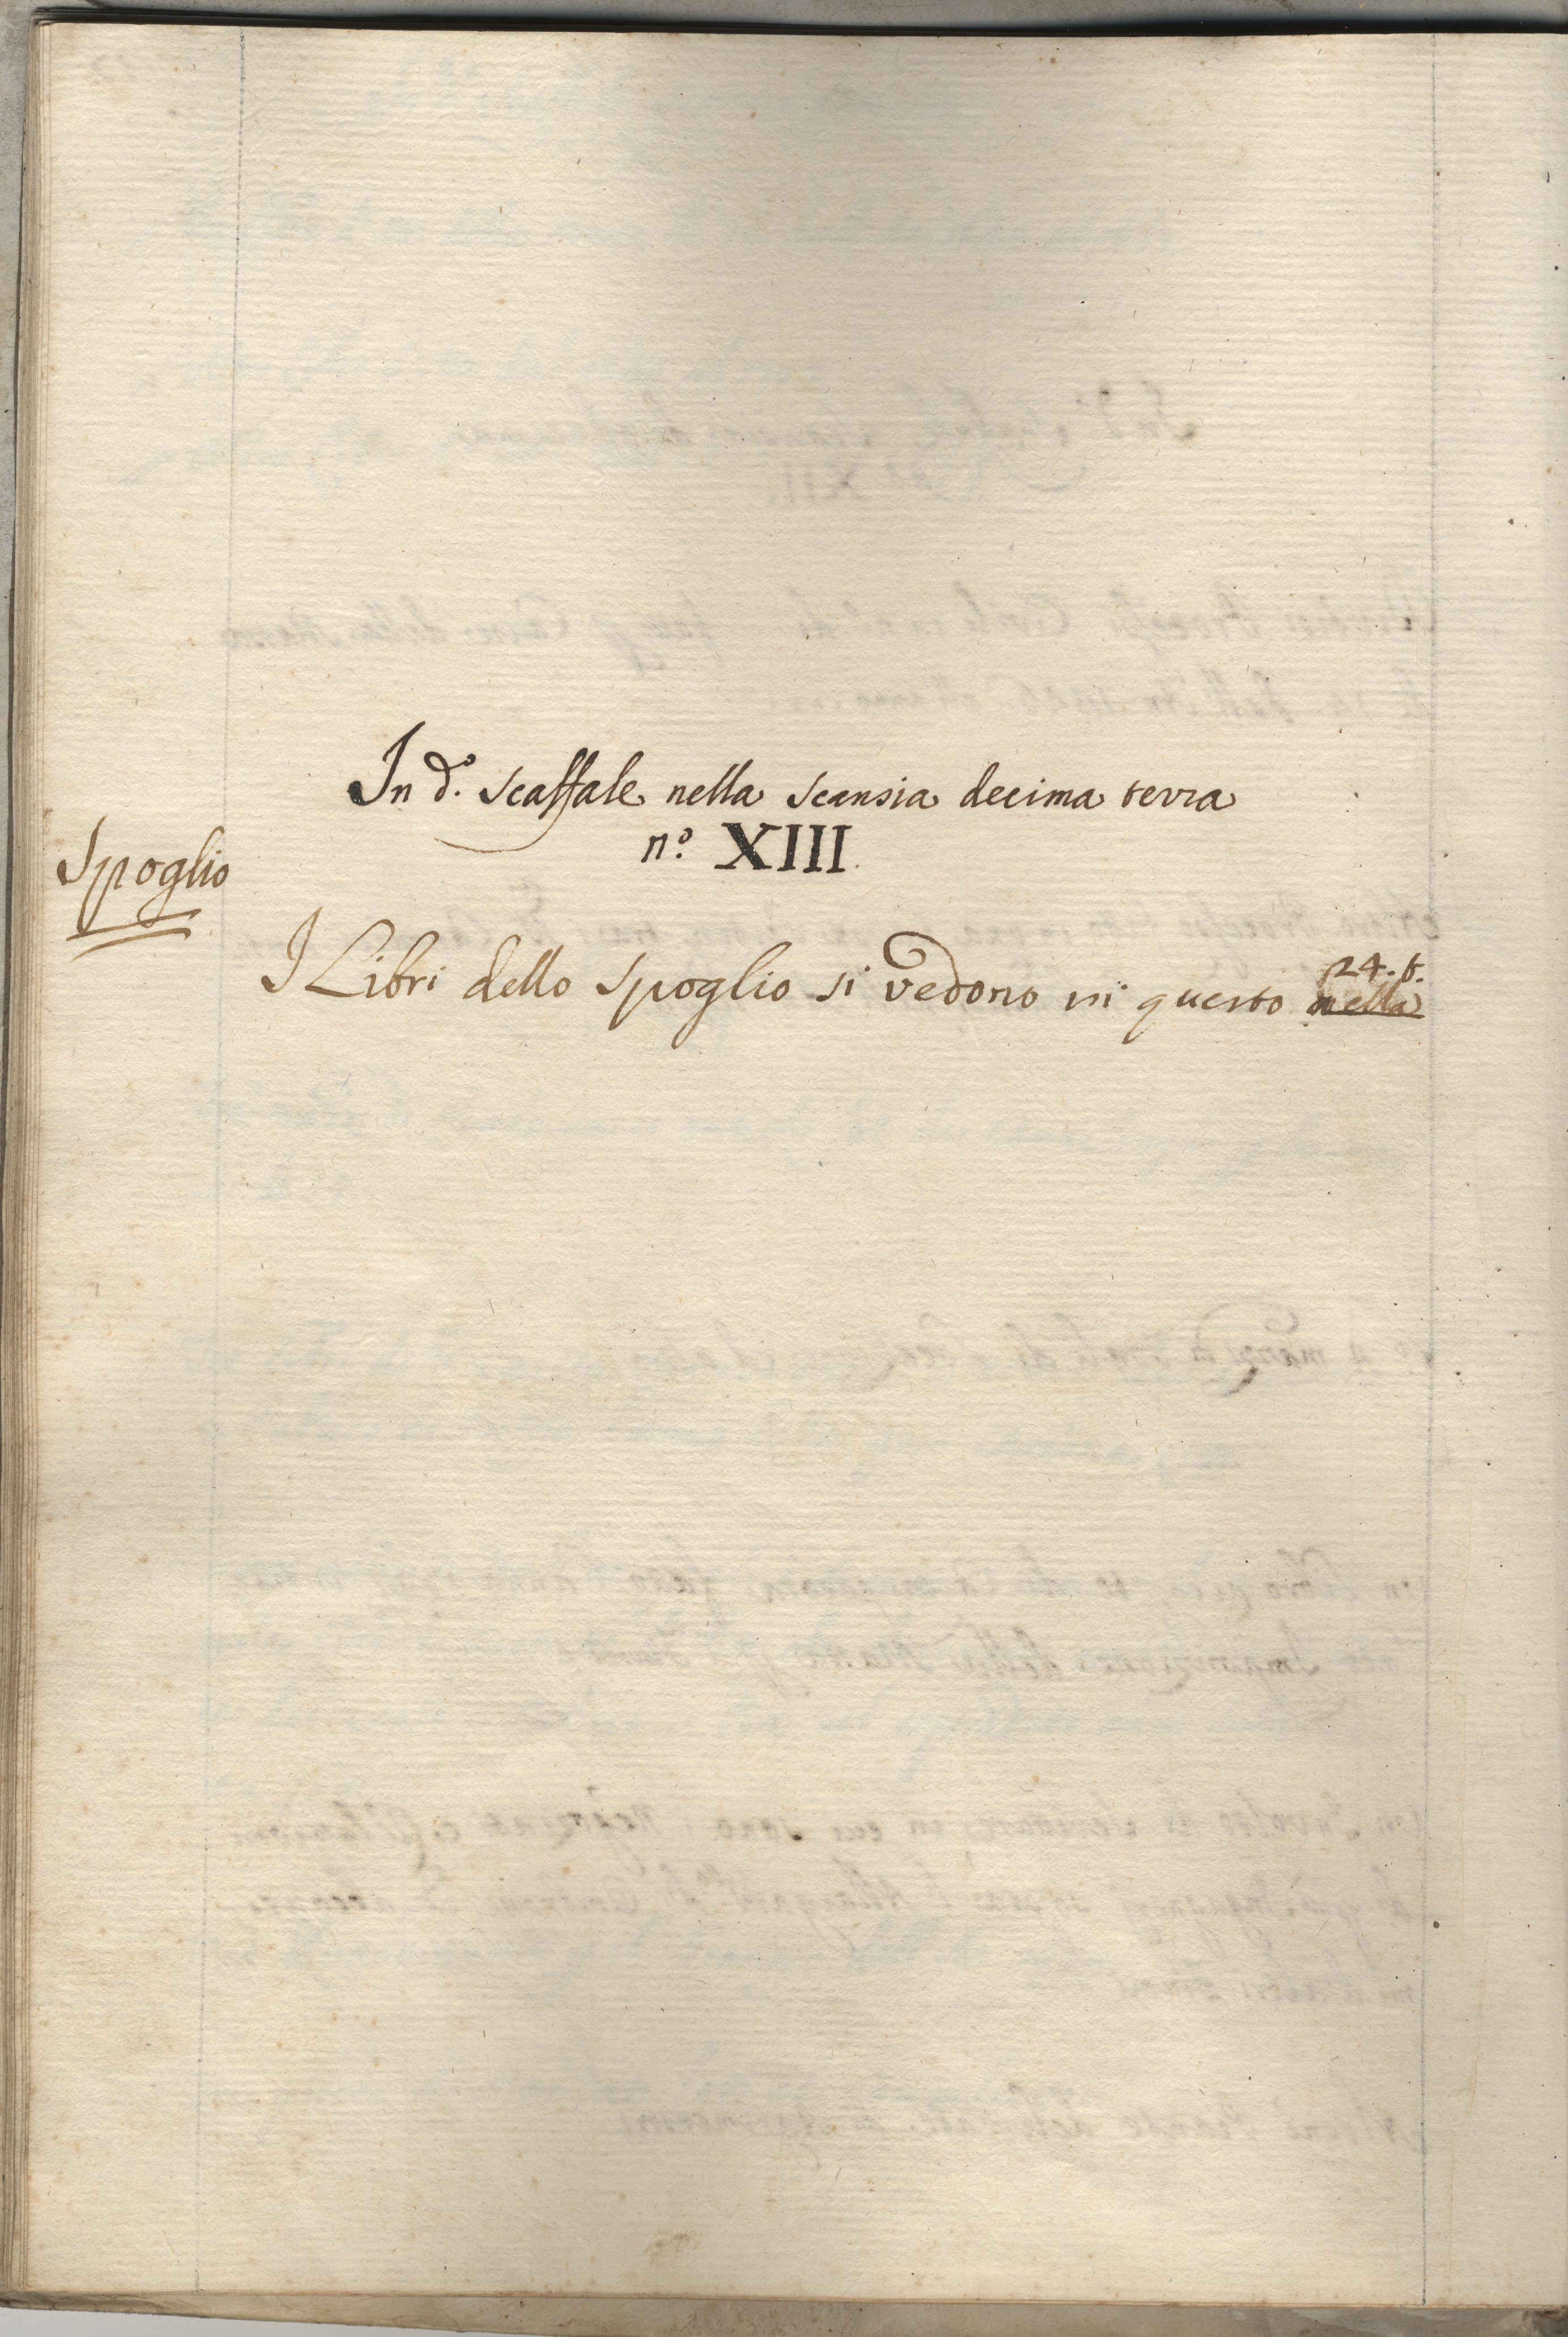 In d.º scaffale nella scansia decima terza
n.º XIII.
Spoglio
I Libri dello Spoglio si vedono in questo nella
24. t.